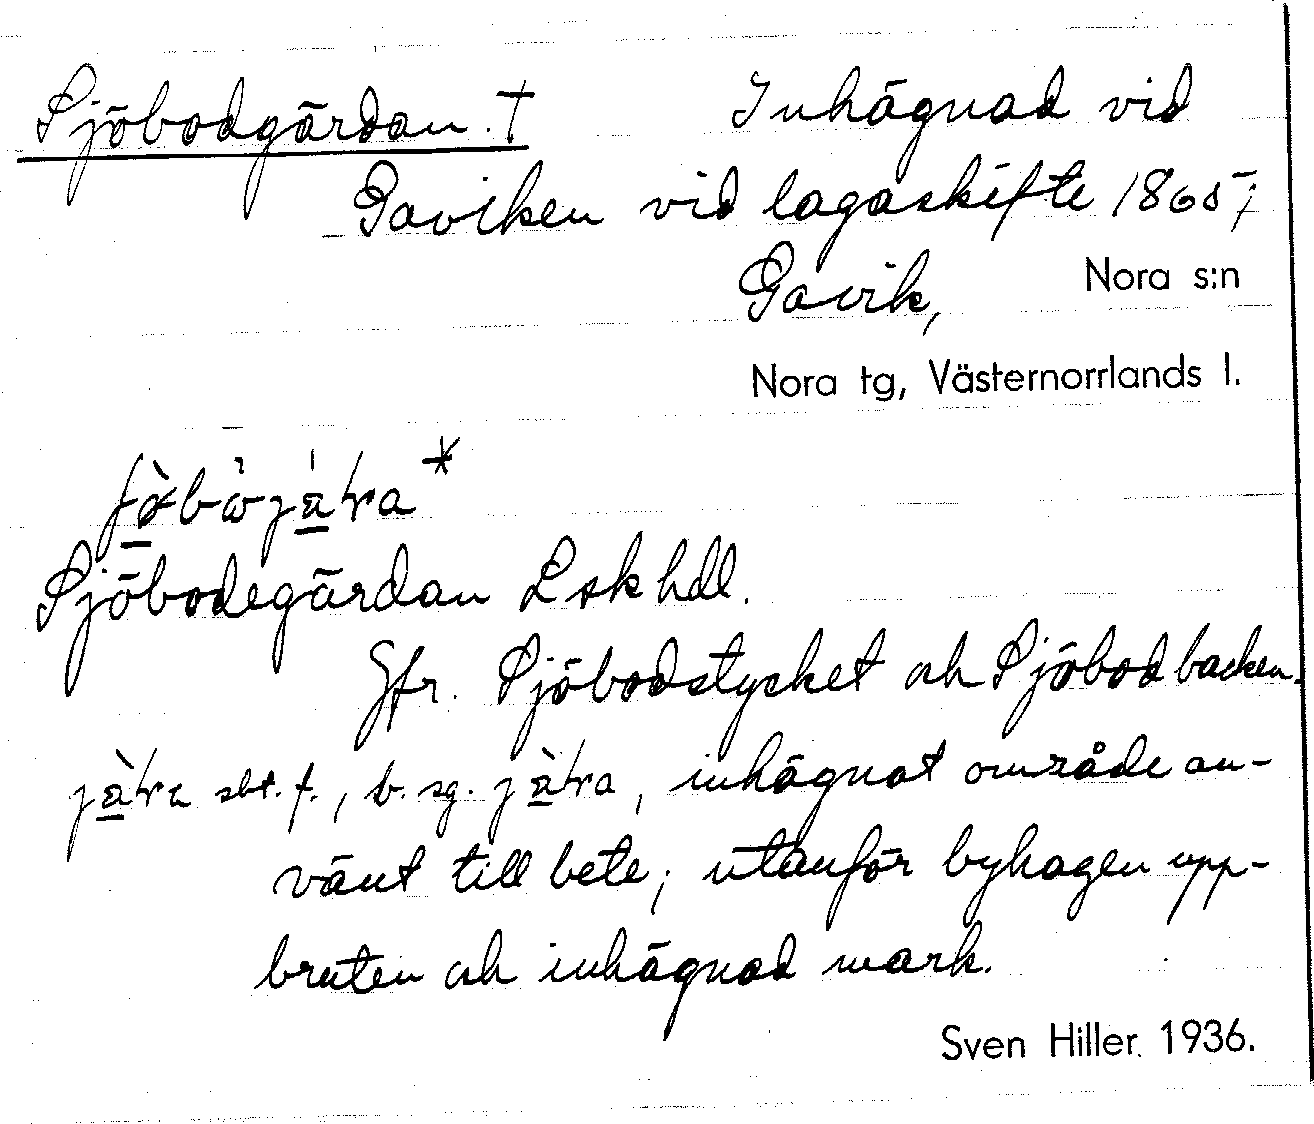 Sjöbodgärdan. † Inhägnad vid
Gaviken vid lagaskifte 1865;
Gavik, Nora s:n
Nora tg, Västernorrlands l.
Sjöbodegärdan Lskhdl.
Jfr. Sjöbodstycket och Sjöbodbacken.
sbt. f., b. sg. inhägnat område an-
vänt till bete; utanför byhagen upp-
bruten och inhägnad mark.
Sven Hiller. 1936.